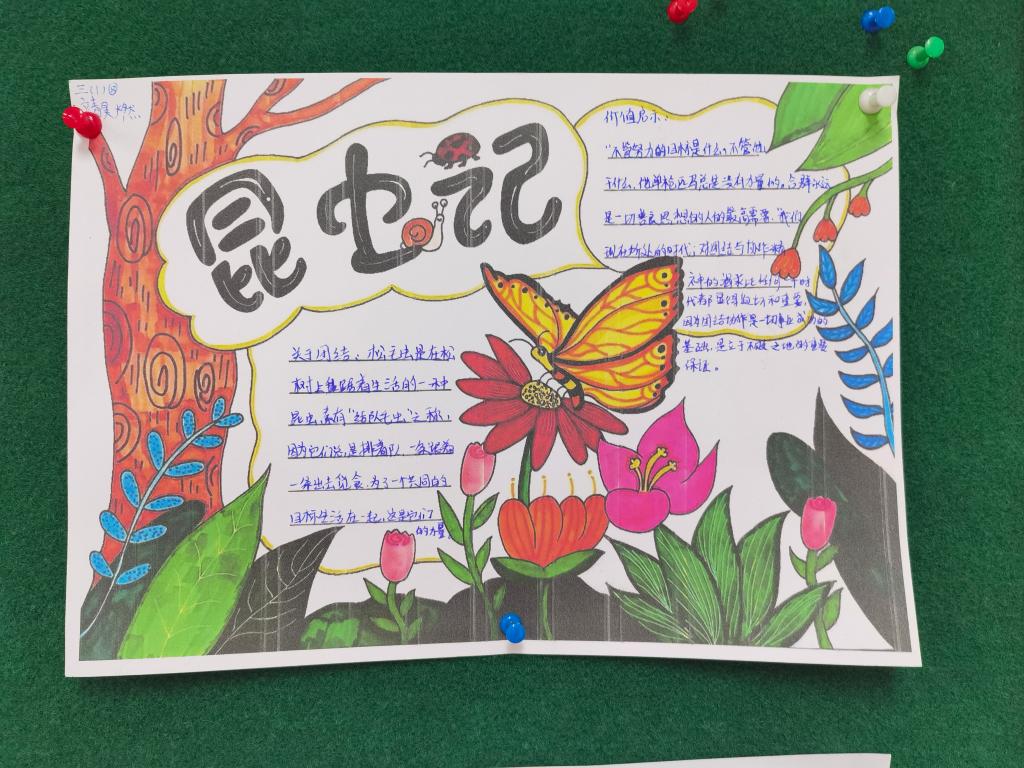 三(1)班
昆虫记
关于团结：松毛虫是在松
树上集体着生活的一种
昆虫，素有“结队毛虫”之称，
因为它们总是排着队，一条跟着
一条出去觅食，为了一个共同的
目标生活在一起，这是它们
的力量。
价值启示：
“不管努力的目标是什么，不管他
干什么，他单枪匹马总是没有力量的。合群永远
是一切善良思想的人的最高需要。”我们
现在所处的时代，对团结与协作精
神的需求比任何一个时
代都显得迫切和重要，
因为团结协作是一切事业成功的
基础，是立于不败之地的重要
保证。